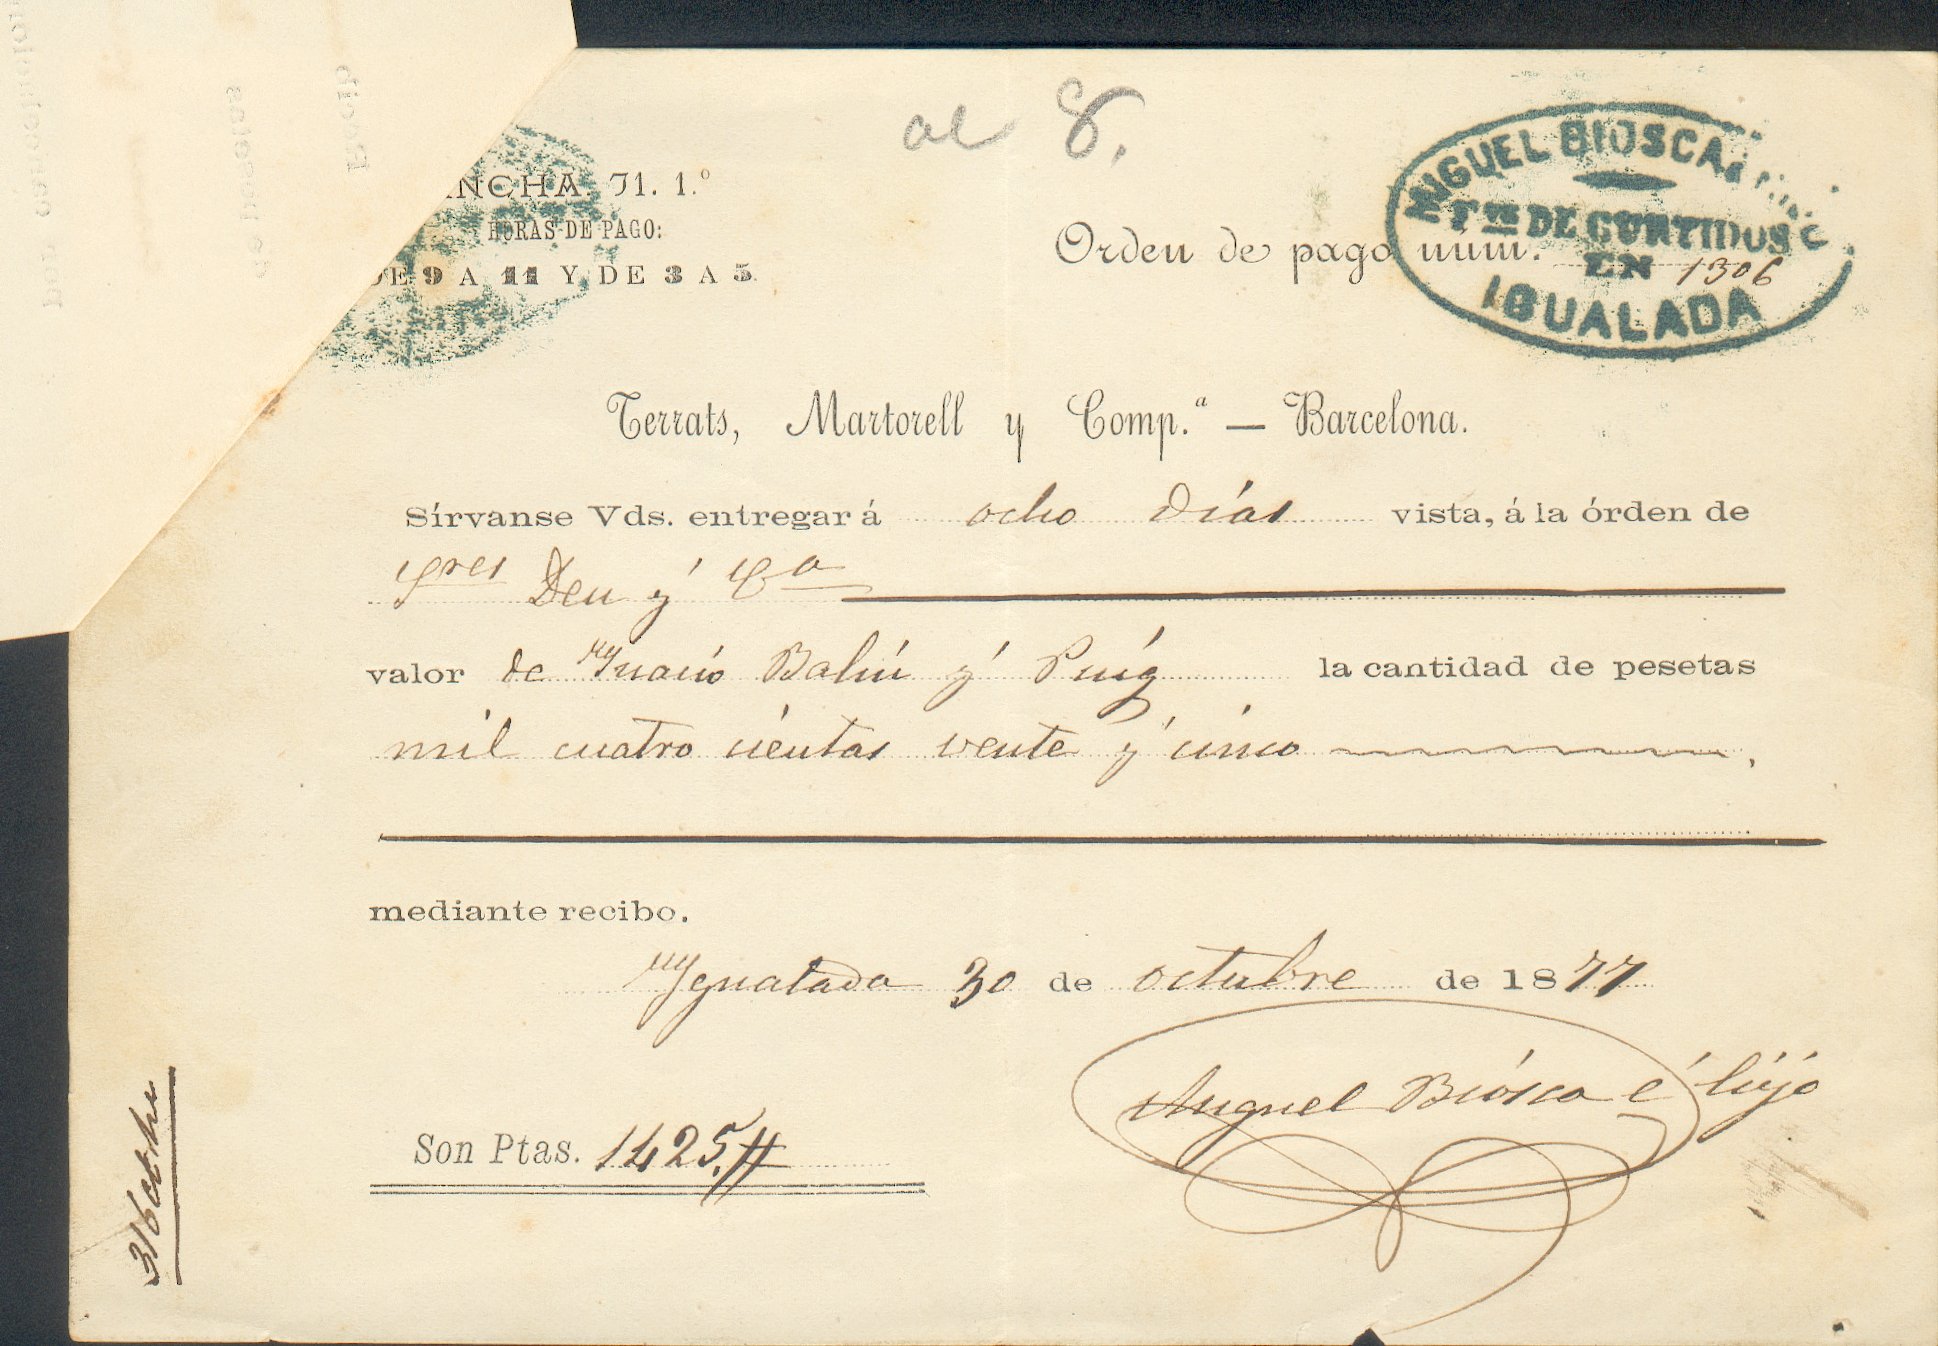 al 8.
ANCHA. 71. 1.º
HORAS DE PAGO:
DE 9 A 11 Y DE 3 A 5
MIGUEL BIOSCA
DE CURTIDOS
EN
IGUALADA
Orden de pago núm. 1306
Terrats, Martorell y Comp.ª — Barcelona.
Sírvanse Vds. entregar á ocho días vista, á la órden de
Sres Deu y Cª
valor de Ygnacio y Puig la cantidad de pesetas
mil cuatro cientas vente y cinco
mediante recibo.
Ygualada 30 de octubre de 1877
Miguel Biosca é hijo
Son Ptas. 1425
31 octbre
Recibí
de pesetas